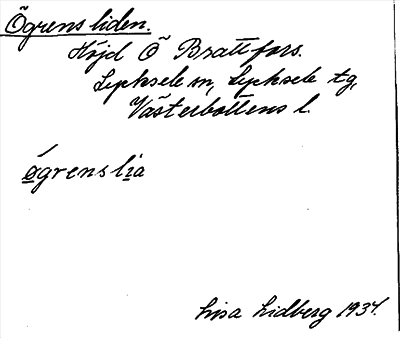 Ögrensliden.
Höjd Ö Brattfors.
Lycksele sn, Lycksele tg,
Västerbottens l.
ǿgrenslia
Lisa Lidberg 1937.